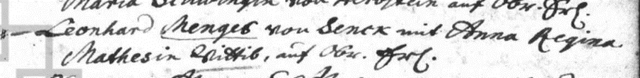 Maria von auf Obr. Frl.
Leonhard Menges von Senck mit Anna Regina
Mathesin Wittib, auf Obr. Frl.